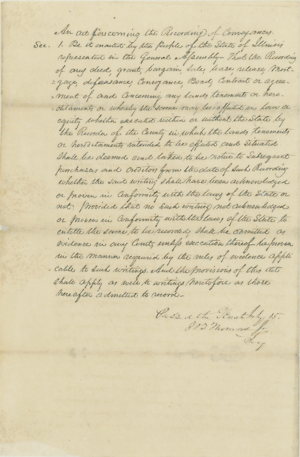 An act concerning the Recording of Conveyances.
Sec. 1. Be it enacted by the People of the State of Illinois
represented in the General Assembly That the Recording
of any deed, grant, bargain, sale, lease, release, Mort-
gage, defeasance, Conveyance, Bond, Contract or agree-
ment of and Concerning any lands tenements or here-
ditaments or whereby the same may be affected in law or
equity whether executed within or without the State by
the Recorder of the County in which the lands tenements
or hereditaments intended to be affected are Situated
Shall be deemed and taken to be notice to Subsequent
purchasers and creditors from the date of Such Recording
whether the Said writing shall have been acknowledged
or proven in Conformity with the laws of the State or
not. Provided that no Such writing not acknowledged
or proven in Conformity with the laws of the State to
entitle the same to be recorded Shall be admitted as
evidence in any Court, unless execution thereof be proven
in the manner required by the rules of evidence appli
cable to Such writings. And the provisions of this act
Shall apply as well to writings heretofore as those
hereafter admitted to record.
Passed the Senate Feby 15
Secy